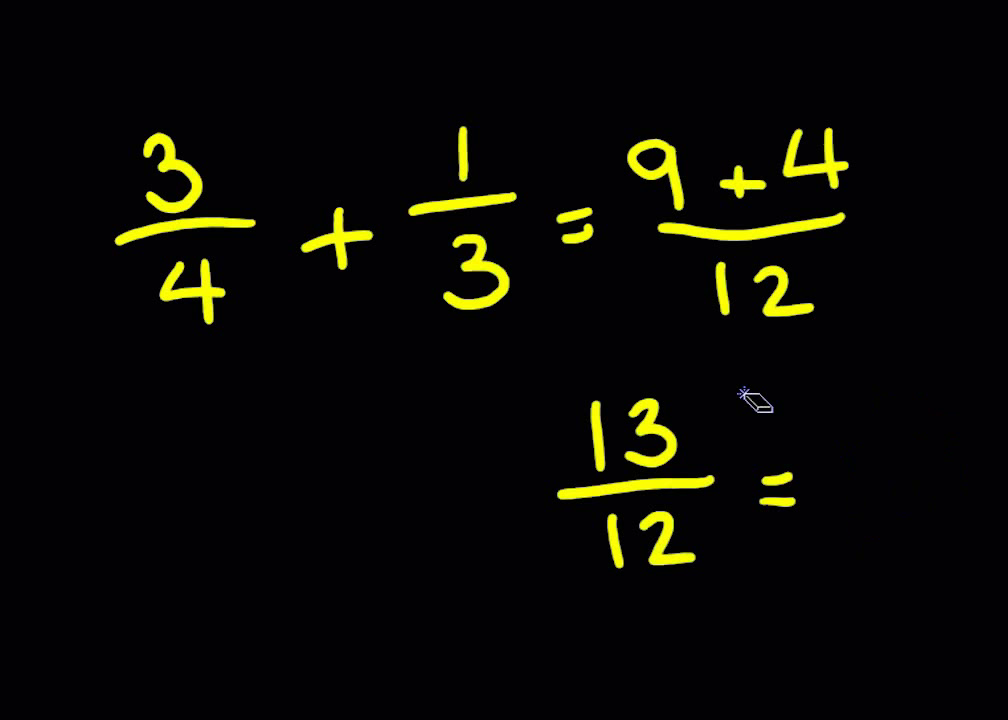 3/4 + 1/3 = 9 + 4/12
13/12 =